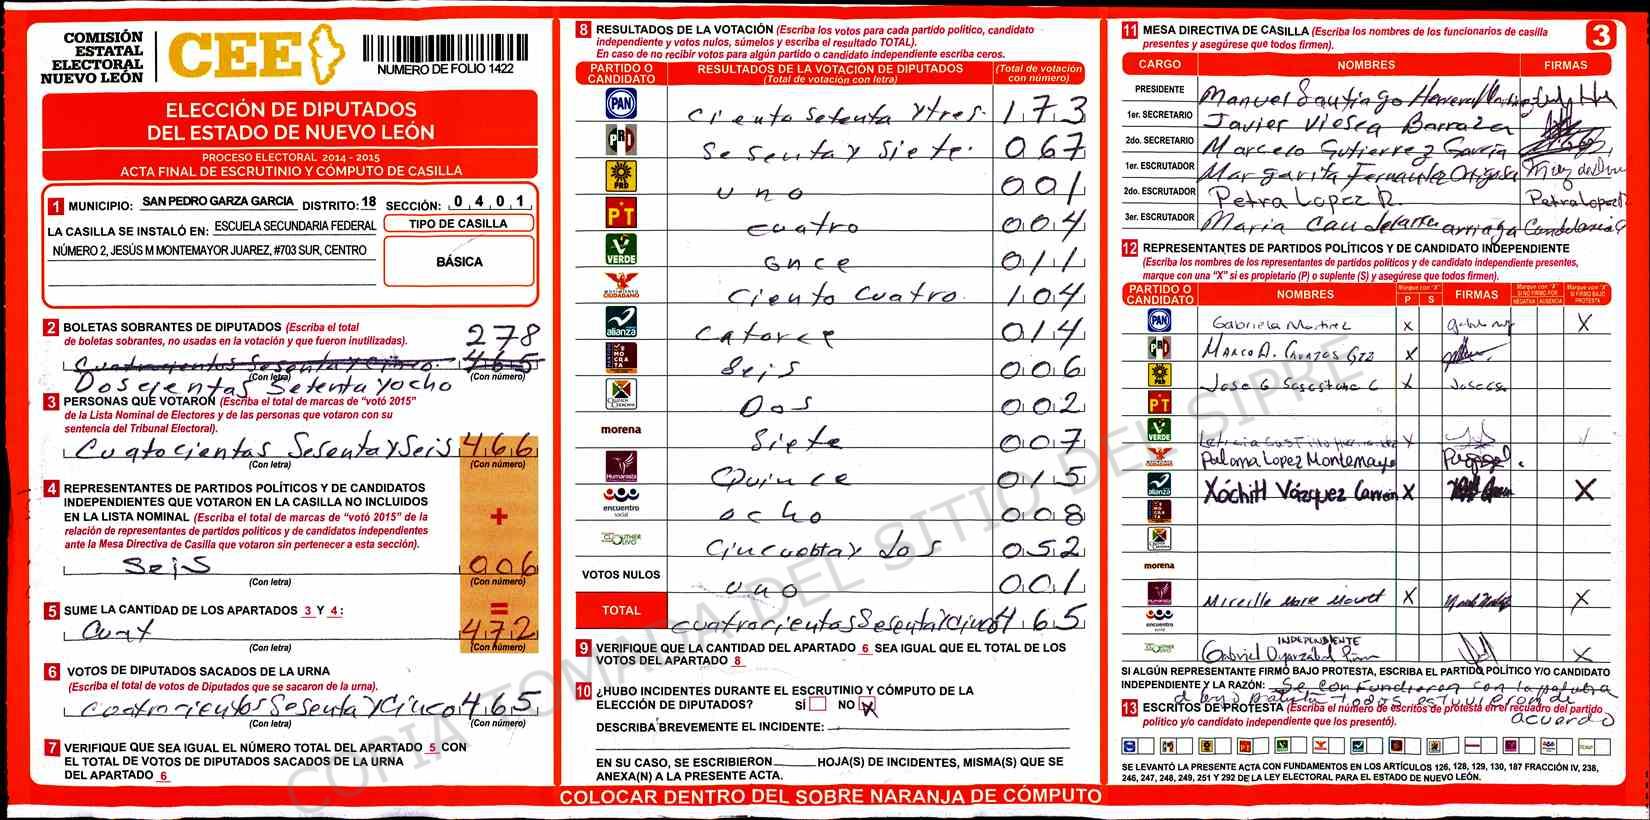 COMISIÓN
ESTATAL
ELECTORAL
NUEVO LEÓN
CEE
NUMERO DE FOLIO 1422
ELECCIÓN DE DIPUTADOS
DEL ESTADO DE NUEVO LEÓN
PROCESO ELECTORAL 2014 - 2015
ACTA FINAL DE ESCRUTINIO Y CÓMPUTO DE CASILLA
1 MUNICIPIO: SAN PEDRO GARZA GARCIA DISTRITO: 18 SECCIÓN: 0 4 0 1
LA CASILLA SE INSTALÓ EN: ESCUELA SECUNDARIA FEDERAL
NÚMERO 2, JESÚS M MONTEMAYOR JUAREZ, #703 SUR, CENTRO
TIPO DE CASILLA
BÁSICA
2 BOLETAS SOBRANTES DE DIPUTADOS (Escriba el total
de boletas sobrantes, no usadas en la votación y que fueron inutilizadas).
278
Cuatrocientos Sesenta y Cinco 465
(Con letra) (Con número)
Doscientas Setenta y ocho
3 PERSONAS QUE VOTARON (Escriba el total de marcas de “votó 2015”
de la Lista Nominal de Electores y de las personas que votaron con su
sentencia del Tribunal Electoral).
Cuatocientas Sesenta y Seis 466
(Con letra) (Con número)
4 REPRESENTANTES DE PARTIDOS POLÍTICOS Y DE CANDIDATOS
INDEPENDIENTES QUE VOTARON EN LA CASILLA NO INCLUIDOS
EN LA LISTA NOMINAL (Escriba el total de marcas de “votó 2015” de la
relación de representantes de partidos políticos y de candidatos independientes
ante la Mesa Directiva de Casilla que votaron sin pertenecer a esta sección).
+
Seis 006
(Con letra) (Con número)
=
5 SUME LA CANTIDAD DE LOS APARTADOS 3 Y 4:
Cuat 472
(Con letra) (Con número)
6 VOTOS DE DIPUTADOS SACADOS DE LA URNA
(Escriba el total de votos de Diputados que se sacaron de la urna).
Cuatrocientos Sesenta y Cinco 465
(Con letra) (Con número)
7 VERIFIQUE QUE SEA IGUAL EL NÚMERO TOTAL DEL APARTADO 5 CON
EL TOTAL DE VOTOS DE DIPUTADOS SACADOS DE LA URNA
DEL APARTADO 6
8 RESULTADOS DE LA VOTACIÓN (Escriba los votos para cada partido político, candidato
independiente y votos nulos, súmelos y escriba el resultado TOTAL).
En caso de no recibir votos para algún partido o candidato independiente escriba ceros.
PARTIDO O CANDIDATO RESULTADOS DE LA VOTACIÓN DE DIPUTADOS (Total de votación con letra) (Total de votación con número)
PAN Ciento Setenta y tres. 173
PRI Sesenta y Siete. 067
PRD uno 001
PT cuatro 004
VERDE once 011
MOVIMIENTO CIUDADANO Ciento Cuatro. 104
alianza Catorce 014
DEMOCRATA Seis 006
CRUZADA CIUDADANA Dos 002
morena Siete 007
Humanista Quince 015
encuentro social ocho 008
Cincuenta y dos 052
VOTOS NULOS uno 001
TOTAL cuatrocientos Sesenta y Cinco 465
9 VERIFIQUE QUE LA CANTIDAD DEL APARTADO 6 SEA IGUAL QUE EL TOTAL DE LOS
VOTOS DEL APARTADO 8
10 ¿HUBO INCIDENTES DURANTE EL ESCRUTINIO Y CÓMPUTO DE LA
ELECCIÓN DE DIPUTADOS? SÍ NO X
DESCRIBA BREVEMENTE EL INCIDENTE:
EN SU CASO, SE ESCRIBIERON HOJA(S) DE INCIDENTES, MISMA(S) QUE SE
ANEXA(N) A LA PRESENTE ACTA.
COLOCAR DENTRO DEL SOBRE NARANJA DE CÓMPUTO
11 MESA DIRECTIVA DE CASILLA (Escriba los nombres de los funcionarios de casilla
presentes y asegúrese que todos firmen).
3
CARGO NOMBRES FIRMAS
PRESIDENTE Manuel Santiago Herrera
1er. SECRETARIO Javier Viesca Barraza
2do. SECRETARIO Marcelo Gutierrez García
1er. ESCRUTADOR Margarita Fernandez
2do. ESCRUTADOR Petra Lopez R. Petra Lopez R
3er. ESCRUTADOR Maria Candelaria arriaga Candelaria
12 REPRESENTANTES DE PARTIDOS POLÍTICOS Y DE CANDIDATO INDEPENDIENTE
(Escriba los nombres de los representantes de partidos políticos y de candidato independiente presentes,
marque con una “X” si es propietario (P) o suplente (S) y asegúrese que todos firmen).
PARTIDO O CANDIDATO NOMBRES Marque con "X" P S FIRMAS Marque con "X" SI NO FIRMO POR NEGATIVA AUSENCIA Marque con "X" SI FIRMO BAJO PROTESTA
PAN Gabriela Martinez X X
PRI Marco A. Cavazos Gzz X
PRD Jose G X
PT
VERDE Leticia Castillo X
Paloma Lopez Montemayor
alianza Xóchitl Vázquez Carreón X X
morena
Mireille X X
encuentro social
INDEPENDIENTE
Gabriel Oyarzabal X
SI ALGÚN REPRESENTANTE FIRMO BAJO PROTESTA, ESCRIBA EL PARTIDO POLÍTICO Y/O CANDIDATO
INDEPENDIENTE Y LA RAZÓN: Se confundieron con la palabra
de bajo protesta todos estuvieron de
acuerdo
13 ESCRITOS DE PROTESTA (Escriba el número de escritos de protesta en el recuadro del partido
político y/o candidato independiente que los presentó).
SE LEVANTÓ LA PRESENTE ACTA CON FUNDAMENTOS EN LOS ARTÍCULOS 126, 128, 129, 130, 187 FRACCIÓN IV, 238,
246, 247, 248, 249, 251 Y 292 DE LA LEY ELECTORAL PARA EL ESTADO DE NUEVO LEÓN.
COPIA TOMADA DEL SITIO DEL SIPRE